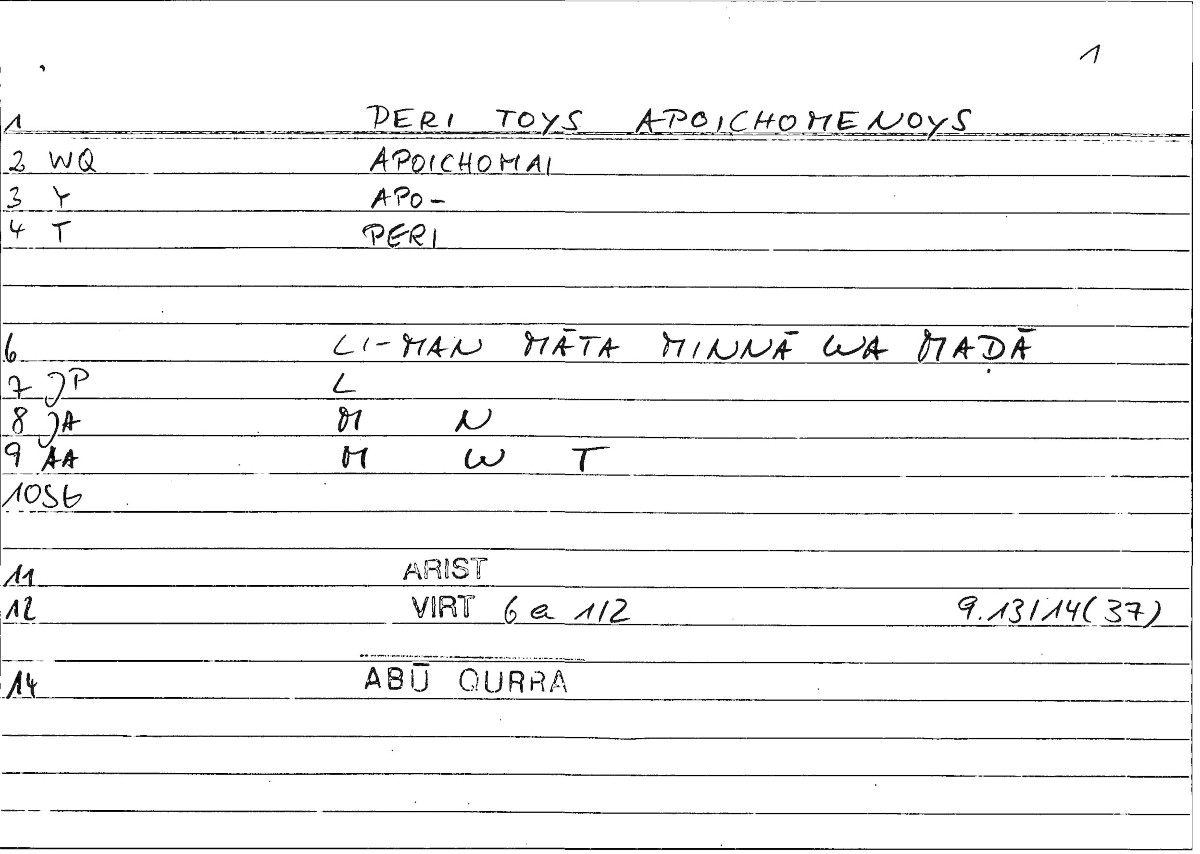 1
1 PERI TOYS APOICHOMENOYS
2 WQ APOICHOMAI
3 Y APO-
4 T PERI
6 LI-MAN MĀTA MINNĀ WA MAḌĀ
7 JP L
8 JA M N
9 AA M W T
10 SG
11 ARIST
12 VIRT 6 a 1/2 9.13/14(37)
14 ABŪ QURRA